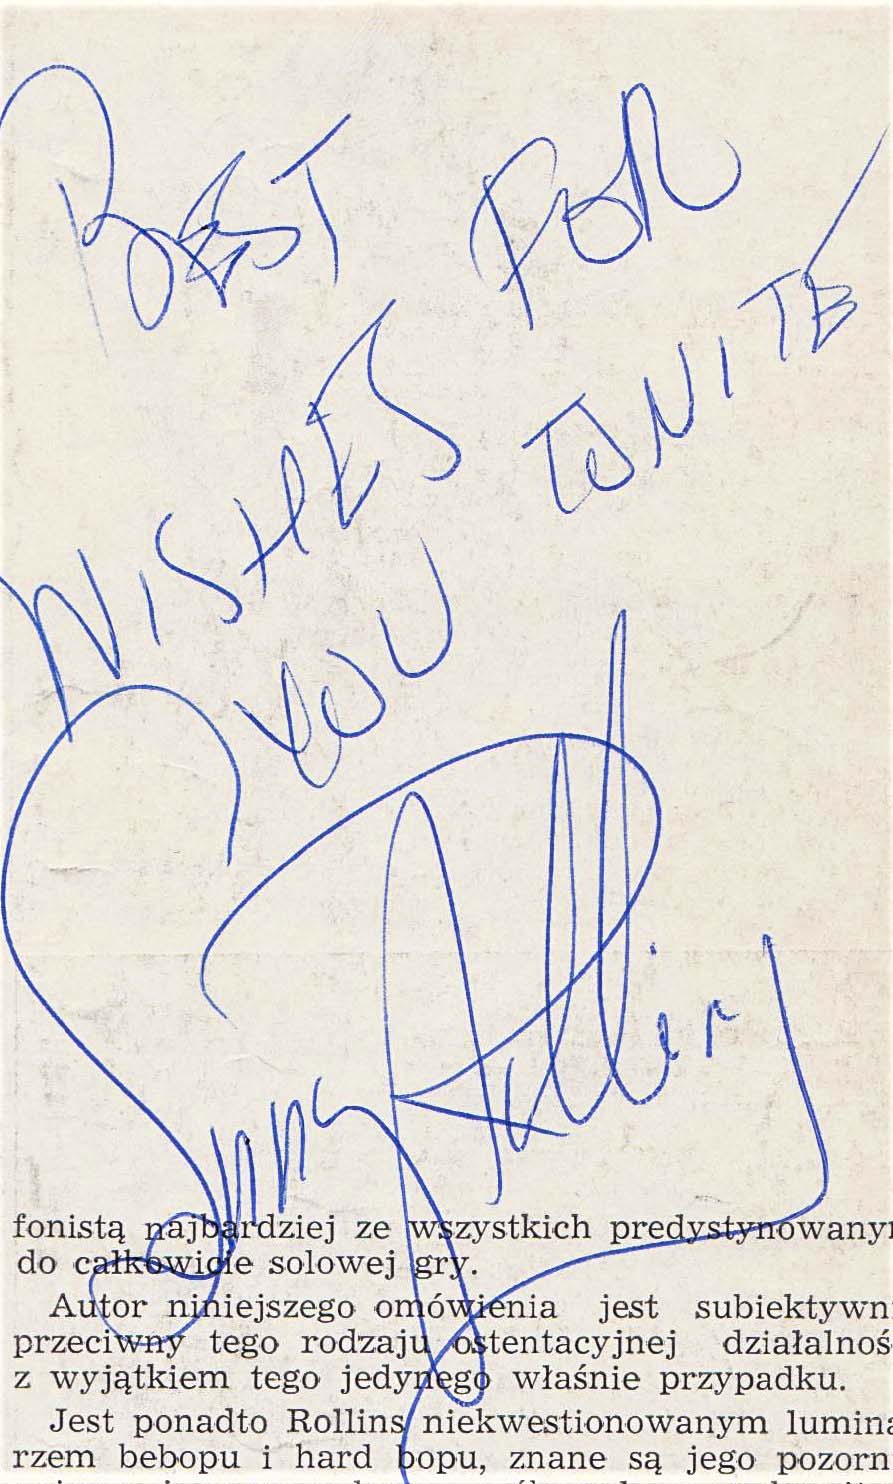 BEST
WISHES
FOR
YOU
TONITE
Sonny Rollins
fonistą najbardziej ze wszystkich predystynowany
do całkowicie solowej gry.
Autor niniejszego omówienia jest subiektywn
przeciwny tego rodzaju ostentacyjnej działalnoś
z wyjątkiem tego jedynego właśnie przypadku.
Jest ponadto Rollins niekwestionowanym lumina
rzem bebopu i hard bopu, znane są jego pozorn